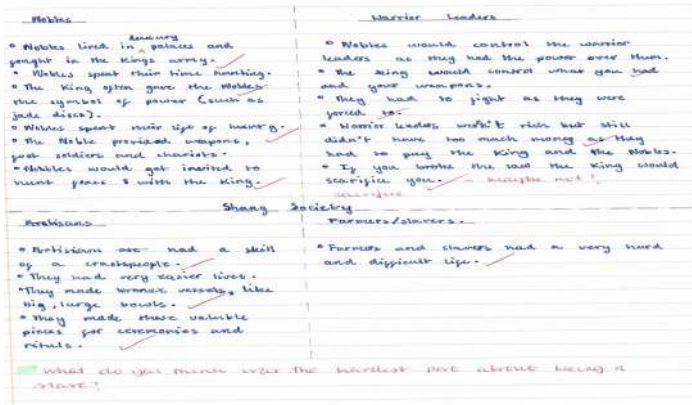 Nobles
luxury
• Nobles lived in ^ palaces and
fought in the Kings army.
• Nobles spent their time hunting.
• The King often gave the Nobles
the symbol of power (such as
jade discs).
• Nobles spent their life of
• The Noble provided weapons,
foot soldiers and chariots.
• Nobles would got invited to
hunt with the King.
Warrior Leaders
• Nobles would control the warrior
leaders as they had the power over them.
• The King would control what you had
and your weapons.
• They had to fight as they were
forced to.
• Warrior leaders rich but still
didn't have too much money as they
had to pay the King and the Nobles.
• If you broke the law the King would
scarifice you. - maybe not!
sacrifice
Shang Society
Artisans
• had a skill
of a craftspeople.
• They had very easier lives.
• They made bronze vessels, like
big, large bowls.
• They made these
pieces for ceremonies and
rituls.
Farmers/slavers.
• Farmers and slavers had a very hard
and difficult life.
What do you was the hardest part about being a
slave?